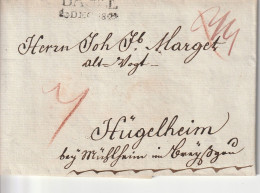 BASEL
DEC
Herrn Joh Jb Marget
alt-Vogt
Hügelheim
bey Mühlheim im Breÿßgau